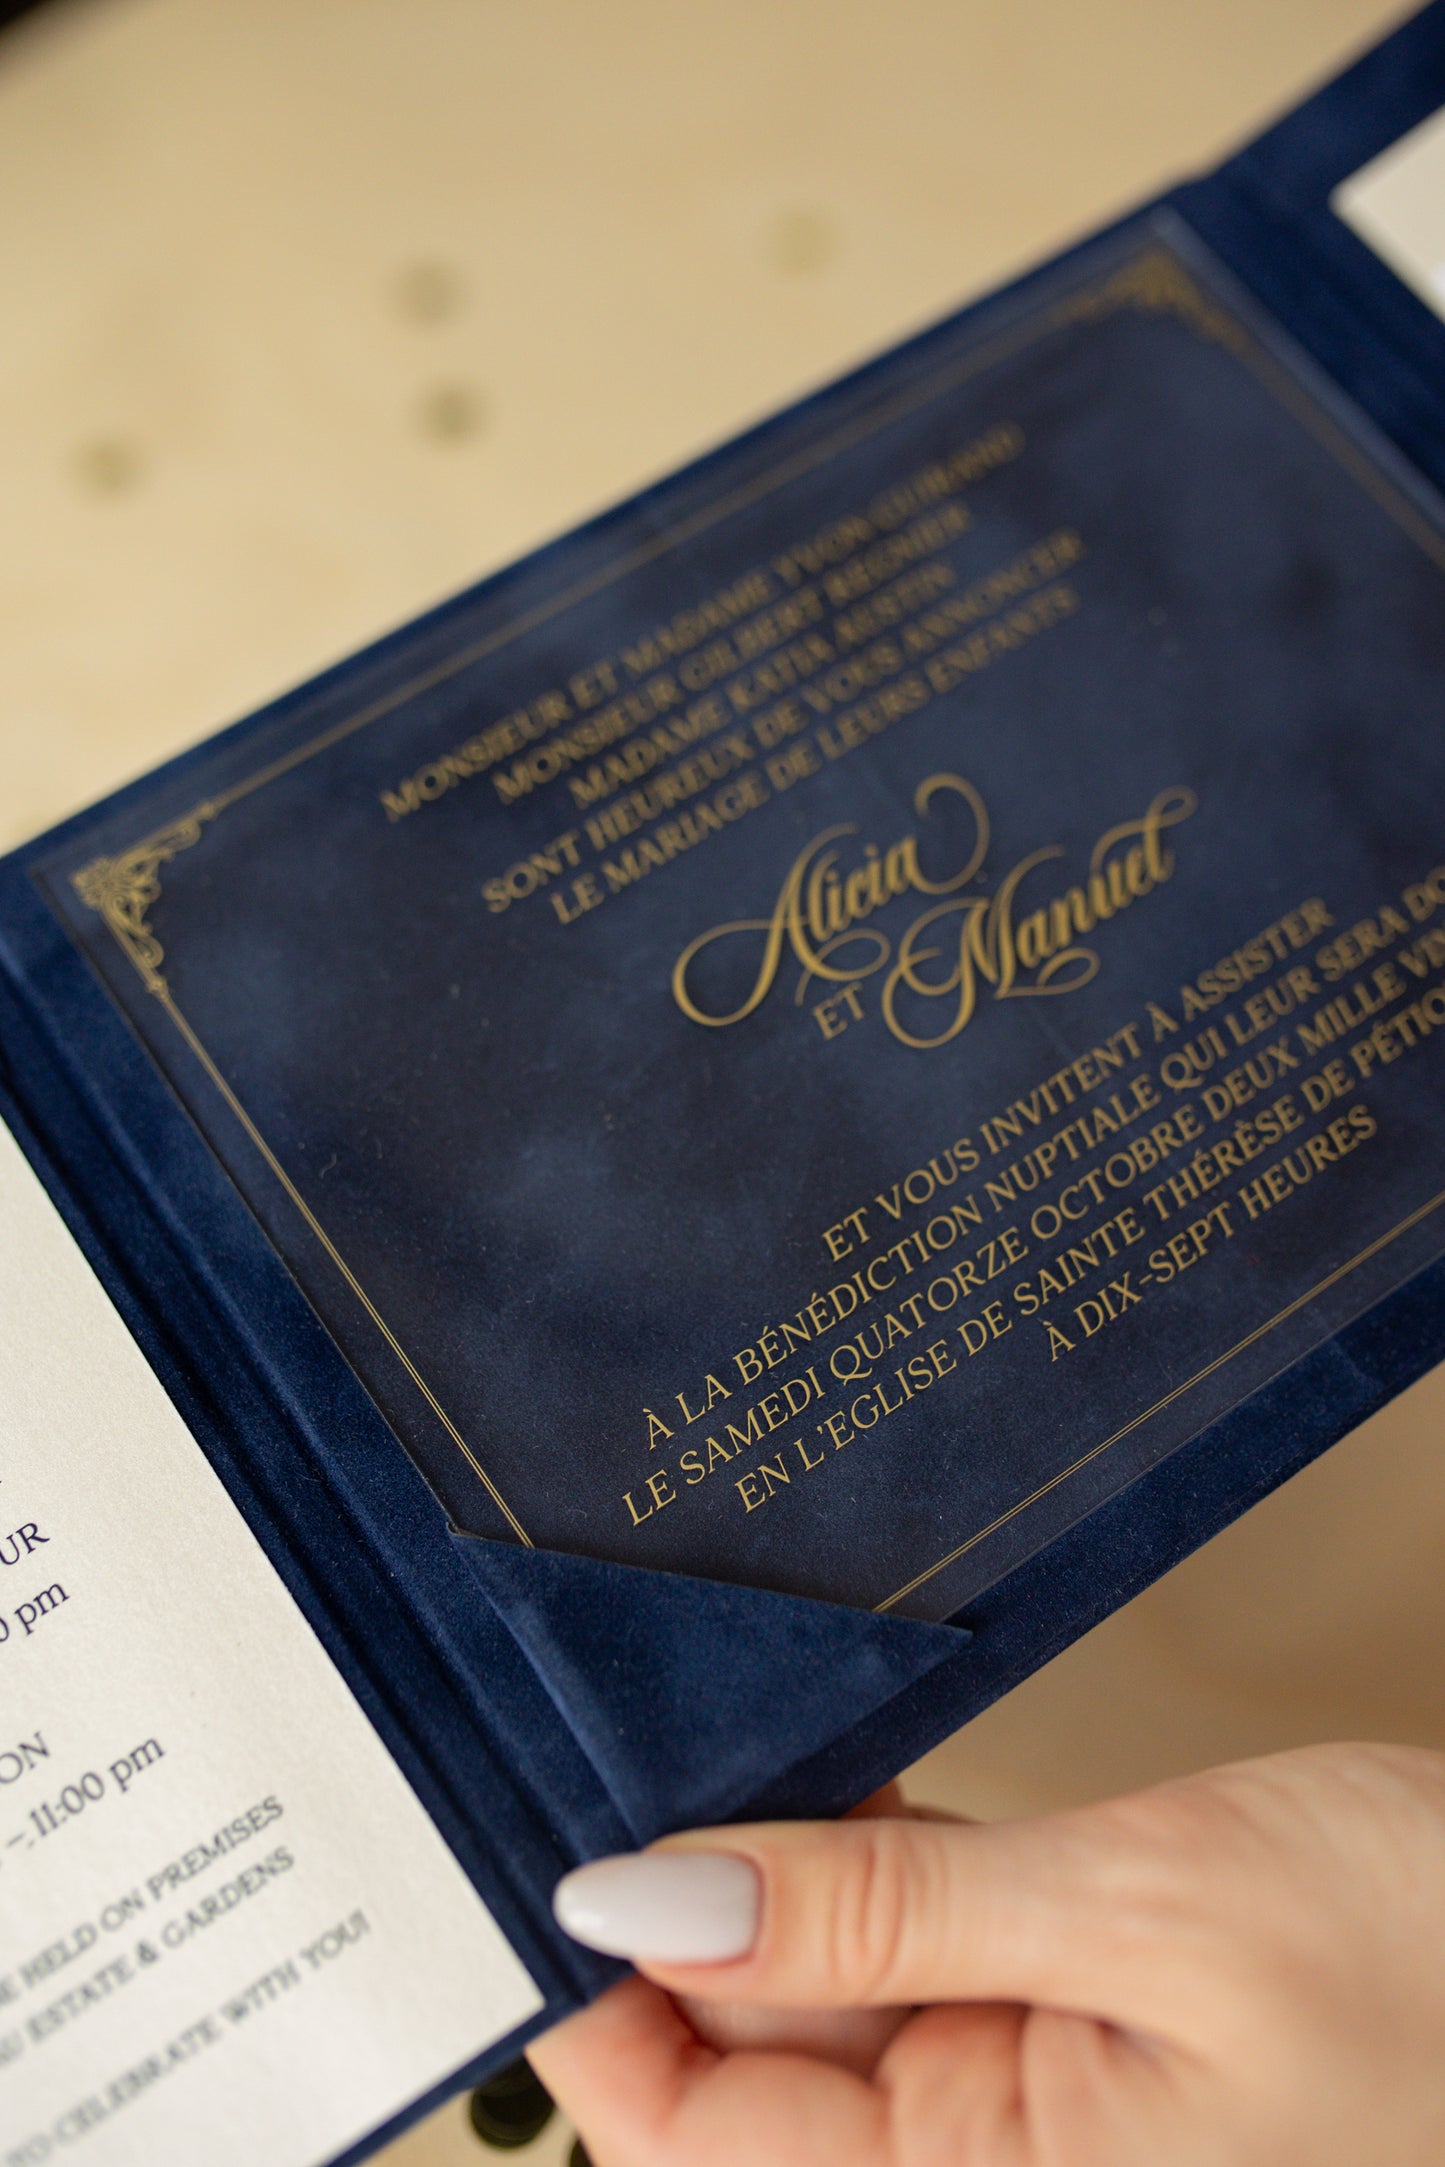 MONSIEUR ET MADAME YVON GUIRAND
MONSIEUR GILBERT REGNIER
MADAME KATIA AUSTIN
SONT HEUREUX DE VOUS ANNONCER
LE MARIAGE DE LEURS ENFANTS
Alicia
ET Manuel
ET VOUS INVITENT À ASSISTER
À LA BÉNÉDICTION NUPTIALE QUI LEUR SERA
LE SAMEDI QUATORZE OCTOBRE DEUX MILLE
EN L'EGLISE DE SAINTE THÉRÈSE DE
À DIX-SEPT HEURES
pm
– 11:00 pm
HELD ON PREMISES
ESTATE & GARDENS
TO CELEBRATE WITH YOU!